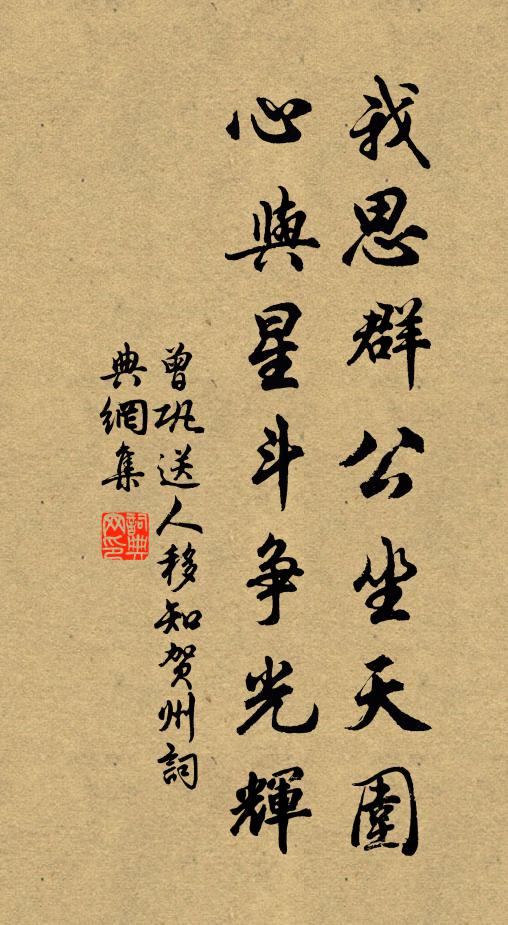 我思群公坐天圍
心與星斗争光輝
曾巩送人移知贺州詞
典網集
詞典网印